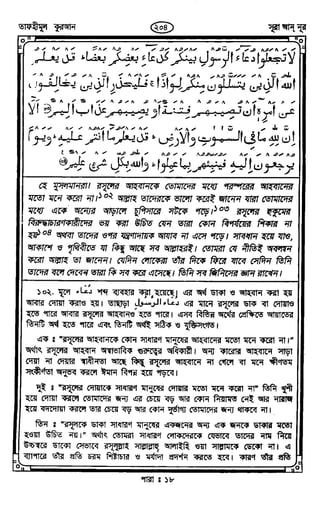 তাফহীমুল কুরআন
২০৪
সূরা আন্ নূর
لَا تَجْعَلُوا دُعَاءَ الرَّسُولِ بَيْنَكُمْ كَدُعَاءِ بَعْضِكُمْ بَعْضًا ۚ قَدْ يَعْلَمُ
اللَّهُ الَّذِينَ يَتَسَلَّلُونَ مِنْكُمْ لِوَاذًا ۚ فَلْيَحْذَرِ الَّذِينَ يُخَالِفُونَ
عَنْ أَمْرِهِ أَنْ تُصِيبَهُمْ فِتْنَةٌ أَوْ يُصِيبَهُمْ عَذَابٌ أَلِيمٌ ﴿٦٣﴾ أَلَا
إِنَّ لِلَّهِ مَا فِي السَّمٰوٰتِ وَالْأَرْضِ ۖ قَدْ يَعْلَمُ مَا أَنْتُمْ عَلَيْهِ ۖ وَيَوْمَ
يُرْجَعُونَ إِلَيْهِ فَيُنَبِّئُهُمْ بِمَا عَمِلُوا ۗ وَاللَّهُ بِكُلِّ شَيْءٍ عَلِيمٌ ﴿٦٤﴾
হে মুসলমানরা! রসূলের আহবানকে তোমাদের মধ্যে পরস্পরের আহবানের
মতো মনে করো না।১০২ আল্লাহ তাদেরকে ভালো করেই জানেন যারা তোমাদের
মধ্যে একে অন্যের আড়ালে চুপিসারে সটকে পড়ে।১০৩ রসূলের হুকুমের
বিরুদ্ধাচরণকারীদের ভয় করা উচিত যেন তারা কোন বিপর্যয়ের শিকার না
হয়১০৪ অথবা তাদের ওপর যন্ত্রণাদায়ক আযাব না এসে পড়ে। সাবধান হয়ে যাও,
আকাশে ও পৃথিবীতে যা কিছু আছে সব আল্লাহরই। তোমরা যে নীতিই অবলম্বন
করো আল্লাহ তা জানেন। যেদিন লোকেরা তাঁর দিকে ফিরে যাবে সেদিন তিনি
তাদের বলে দেবেন তারা কি সব করে এসেছে। তিনি সব জিনিসের জ্ঞান রাখেন।
১০২. মূলে دُعَاءَ শব্দ ব্যবহার করা হয়েছে। এর অর্থ ডাক ও আহবান করা হয়
আবার দোয়া করাও হয়। তাছাড়া دُعَاءَ الرَّسُولِ এর মানে রসূলের ডাক বা দোয়াও
হতে পারে আবার রসূলকে আহবানও হতে পারে। এসব বিভিন্ন অর্থের প্রেক্ষিতে আয়াতের
তিনটি অর্থ হতে পারে এবং তিনটি অর্থই সঠিক ও যুক্তিসংগত।
এক ঃ "রসূলের আহবানকে কোন সাধারণ মানুষের আহবানের মতো মনে করো না।"
অর্থাৎ রসূলের আহবান অস্বাভাবিক গুরুত্বের অধিকারী। অন্য কারোর আহবানে সাড়া
দেয়া না দেয়ার স্বাধীনতা আছে কিন্তু রসূলের আহবানে না গেলে বা মনে ক্ষীণতম
সংকীর্ণতা অনুভব করলে ঈমান বিপন্ন হয়ে পড়বে।
দুই ঃ "রসূলের দোয়াকে সাধারণ মানুষের দোয়ার মতো মনে করো না।" তিনি খুশী
হয়ে দোয়া করলে তোমাদের জন্য এর চেয়ে বড় আর কোন নিয়ামত নেই আর নারাজ
হয়ে বদদোয়া করলে তার চেয়ে বড় আর কোন দুর্ভাগ্য তোমাদের জন্য থাকবে না।
তিন ঃ "রসূলকে ডাকা সাধারণ মানুষের একজনের অন্য একজনকে ডাকার মতো
হওয়া উচিত নয়।" অর্থাৎ তোমরা সাধারণ লোকদেরকে যেভাবে তাদের নাম নিয়ে
উচ্চস্বরে ডাকো সেভাবে রসূলুল্লাহ সাল্লাল্লাহু আলাইহি ওয়া সাল্লামকে ডেকো না। এ
ব্যাপারে তাঁর প্রতি চরম শিষ্টাচার ও মর্যাদা প্রদর্শন করতে হবে। কারণ তাঁর প্রতি
পারা ঃ ১৮